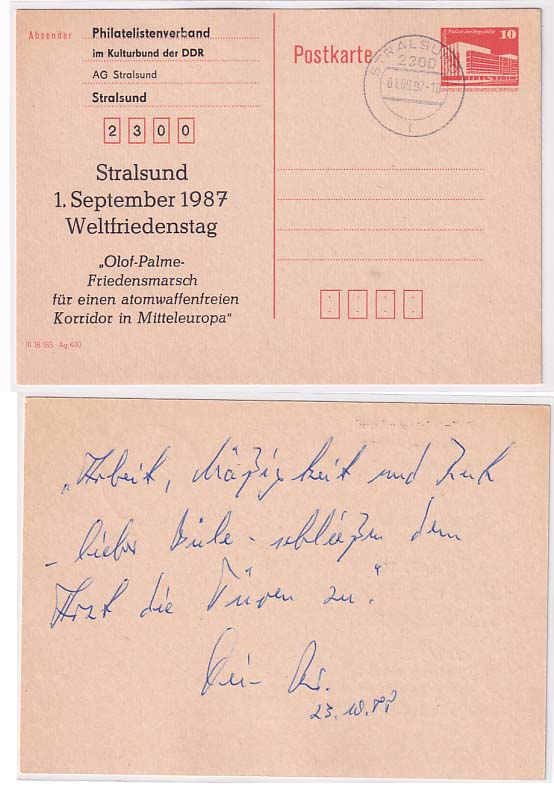 Absender
Philatelistenverband
im Kulturbund der DDR
AG Stralsund
Stralsund
2 3 0 0
Stralsund
1. September 1987
Weltfriedenstag
„Olof-Palme-
Friedensmarsch
für einen atomwaffenfreien
Korridor in Mitteleuropa“
III 18 185 Ag 400
Postkarte
STRALSUND
2300
01.09.87-18
1
Palast der Republik
10
DEUTSCHE DEMOKRATISCHE REPUBLIK
„Arbeit, Mäßigkeit und
– lieber – schließen dem
Arzt die Türen zu.“
Dein
23.10.87